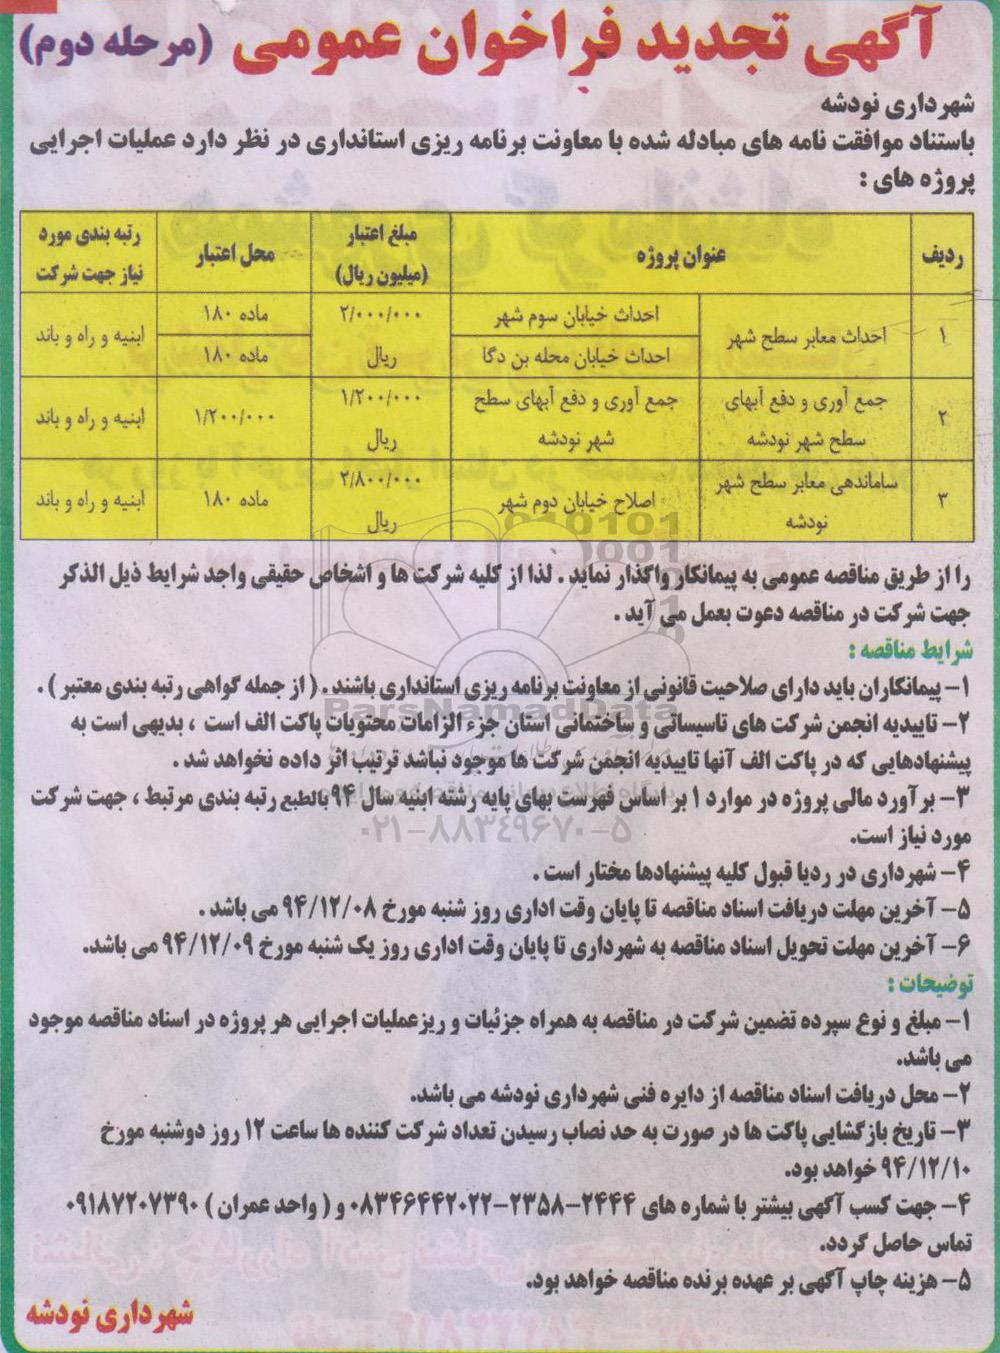 آگهی تجدید فراخوان عمومی (مرحله دوم)
شهرداری نودشه
باستناد موافقت نامه های مبادله شده با معاونت برنامه ریزی استانداری در نظر دارد عملیات اجرایی
پروژه های :
ردیف | عنوان پروژه | مبلغ اعتبار (میلیون ریال) | محل اعتبار | رتبه بندی مورد نیاز جهت شرکت
۱ | احداث معابر سطح شهر | احداث خیابان سوم شهر | ۲/۰۰۰/۰۰۰ ریال | ماده ۱۸۰ | ابنیه و راه و باند
احداث خیابان محله بن دگا | ماده ۱۸۰
۲ | جمع آوری و دفع آبهای سطح شهر نودشه | جمع آوری و دفع آبهای سطح شهر نودشه | ۱/۲۰۰/۰۰۰ ریال | ۱/۲۰۰/۰۰۰ | ابنیه و راه و باند
۳ | ساماندهی معابر سطح شهر نودشه | اصلاح خیابان دوم شهر | ۲/۸۰۰/۰۰۰ ریال | ماده ۱۸۰ | ابنیه و راه و باند
را از طریق مناقصه عمومی به پیمانکار واگذار نماید . لذا از کلیه شرکت ها و اشخاص حقیقی واجد شرایط ذیل الذکر
جهت شرکت در مناقصه دعوت بعمل می آید .
شرایط مناقصه :
۱- پیمانکاران باید دارای صلاحیت قانونی از معاونت برنامه ریزی استانداری باشند . ( از جمله گواهی رتبه بندی معتبر ) .
۲- تاییدیه انجمن شرکت های تاسیساتی و ساختمانی استان جزء الزامات محتویات پاکت الف است ، بدیهی است به
پیشنهادهایی که در پاکت الف آنها تاییدیه انجمن شرکت ها موجود نباشد ترتیب اثر داده نخواهد شد .
۳- برآورد مالی پروژه در موارد ۱ بر اساس فهرست بهای پایه رشته ابنیه سال ۹۴ بالطبع رتبه بندی مرتبط ، جهت شرکت
مورد نیاز است.
۴- شهرداری در ردیا قبول کلیه پیشنهادها مختار است .
۵- آخرین مهلت دریافت اسناد مناقصه تا پایان وقت اداری روز شنبه مورخ ۹۴/۱۲/۰۸ می باشد .
۶- آخرین مهلت تحویل اسناد مناقصه به شهرداری تا پایان وقت اداری روز یک شنبه مورخ ۹۴/۱۲/۰۹ می باشد.
توضیحات :
۱- مبلغ و نوع سپرده تضمین شرکت در مناقصه به همراه جزئیات و ریزعملیات اجرایی هر پروژه در اسناد مناقصه موجود
می باشد.
۲- محل دریافت اسناد مناقصه از دایره فنی شهرداری نودشه می باشد.
۳- تاریخ بازگشایی پاکت ها در صورت به حد نصاب رسیدن تعداد شرکت کننده ها ساعت ۱۲ روز دوشنبه مورخ
۹۴/۱۲/۱۰ خواهد بود.
۴- جهت کسب آگهی بیشتر با شماره های ۲۴۴۴-۲۳۵۸-۰۸۳۴۶۴۴۲۰۲۲ و ( واحد عمران ) ۰۹۱۸۷۲۰۷۳۹۰
تماس حاصل گردد.
۵- هزینه چاپ آگهی بر عهده برنده مناقصه خواهد بود.
شهرداری نودشه
ParsNamadData
۰۲۱-۸۸۳۴۹۶۷۰-۵